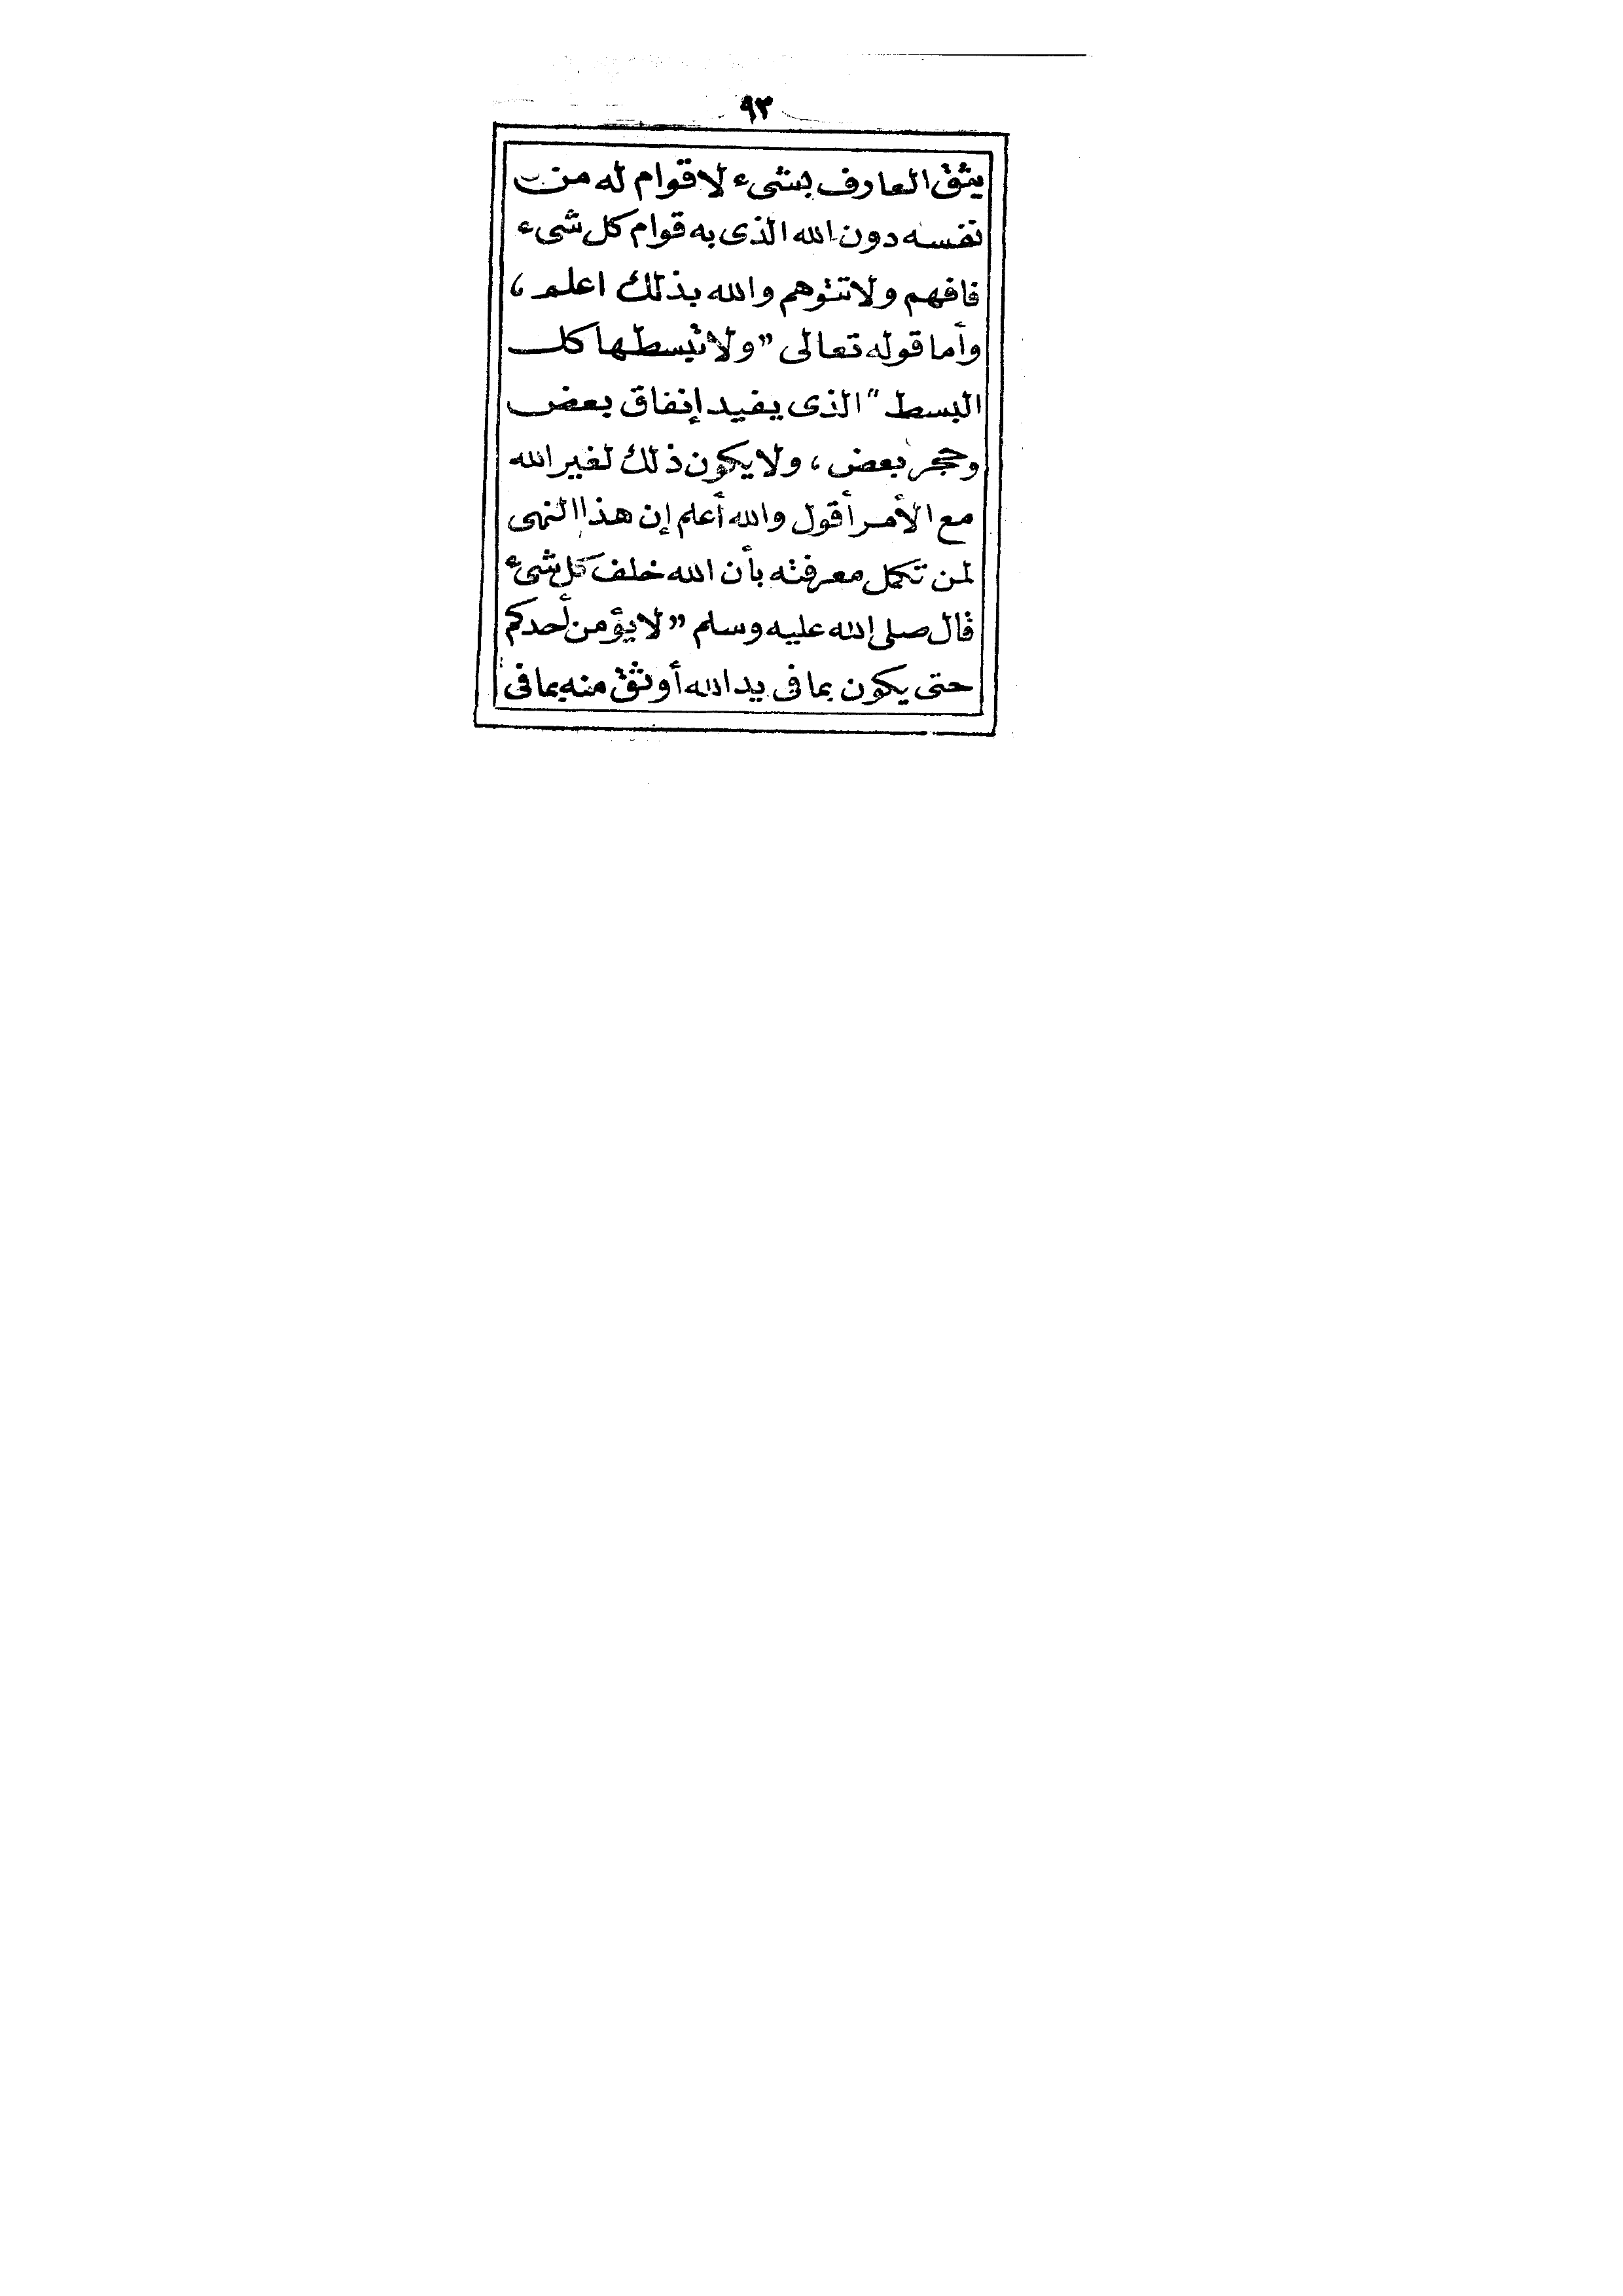 ٩٣
يثق العارف بشىء لا قوام له من
نفسه دون الله الذى به قوام كل شىء
فافهم ولا تتوهم والله بذلك اعلم ،
وأما قوله تعالى " ولا تبسطها كل
البسط " الذى يفيد إنفاق بعض
وحجر بعض ، ولا يكون ذلك لغير الله
مع الأمر أقول والله أعلم إن هذا النهى
لمن تكمل معرفته بأن الله خلف كل شىء
قال صلى الله عليه وسلم " لا يؤمن أحدكم
حتى يكون بما فى يد الله أوثق منه بما فى